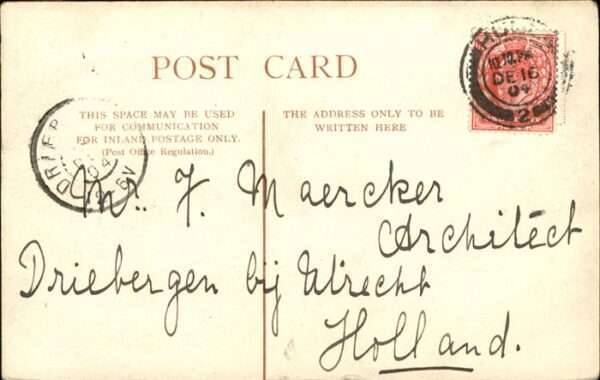 POST CARD
THIS SPACE MAY BE USED
FOR COMMUNICATION
FOR INLAND POSTAGE ONLY.
(Post Office Regulation.)
THE ADDRESS ONLY TO BE
WRITTEN HERE
10.10 PM
DE 16
04
2
DRIEB
Mr. J. Maercker
Architect
Driebergen bij Utrecht
Holland.